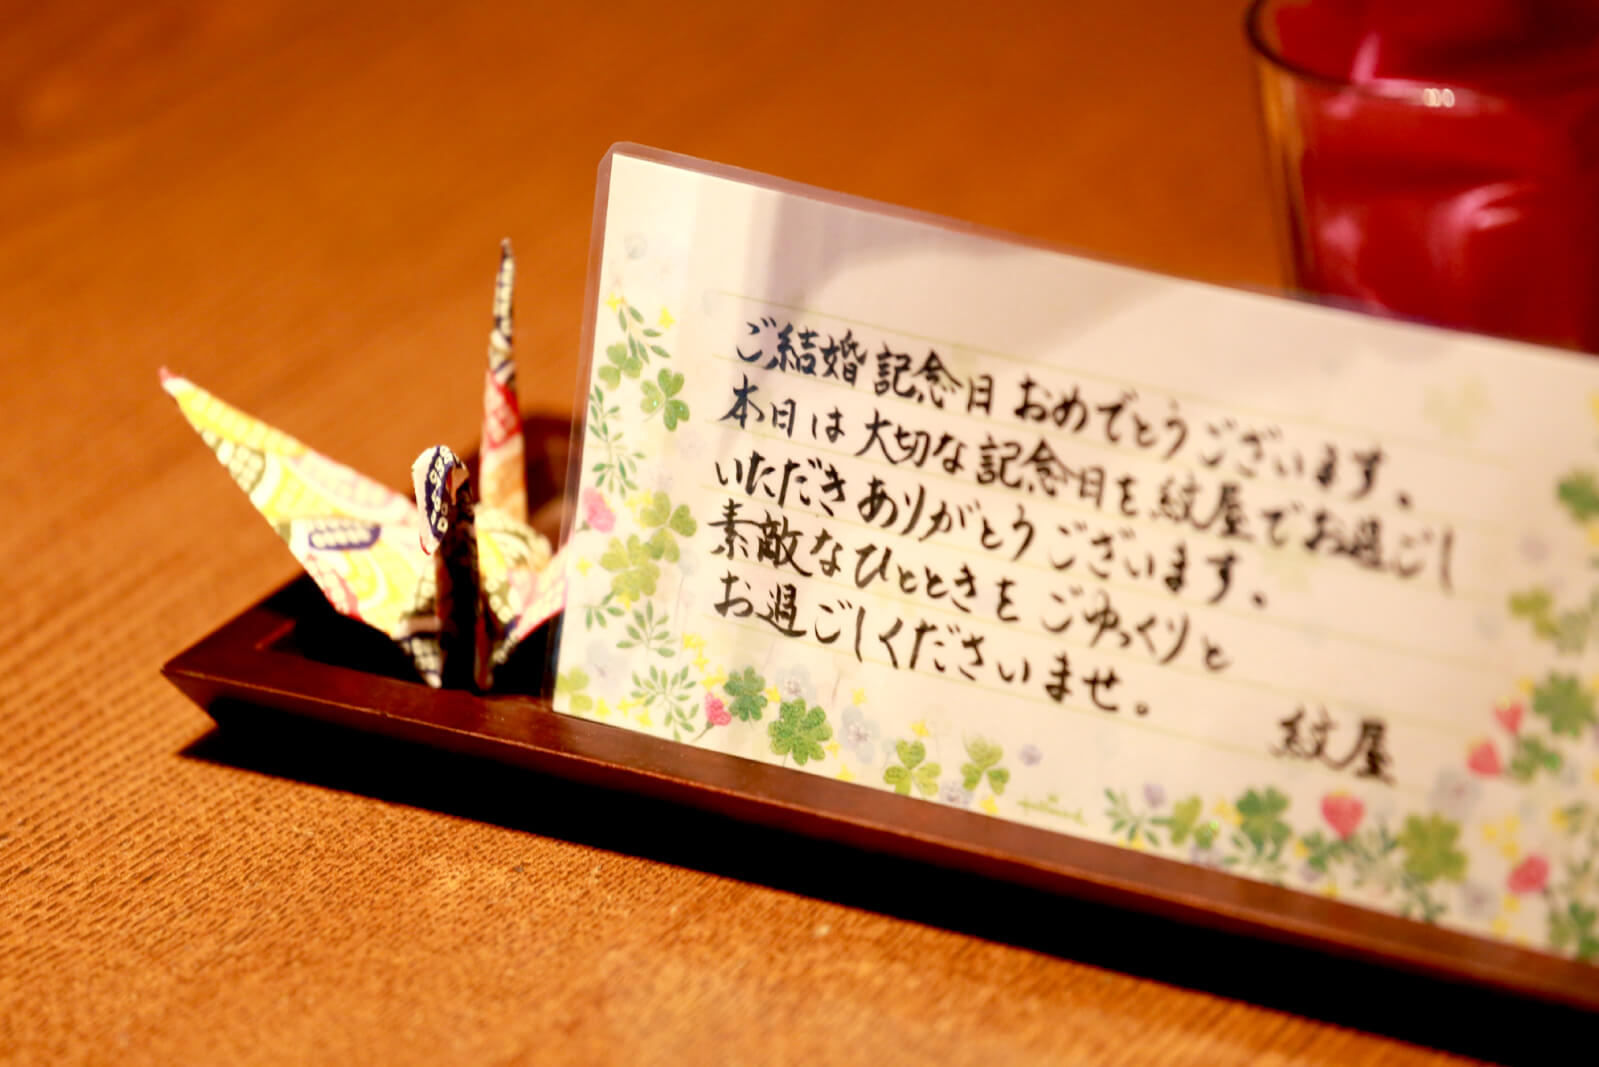 ご結婚記念日おめでとうございます。
本日は大切な記念日を紋屋でお過ごし
いただきありがとうございます。
素敵なひとときをごゆっくりと
お過ごしくださいませ。
紋屋